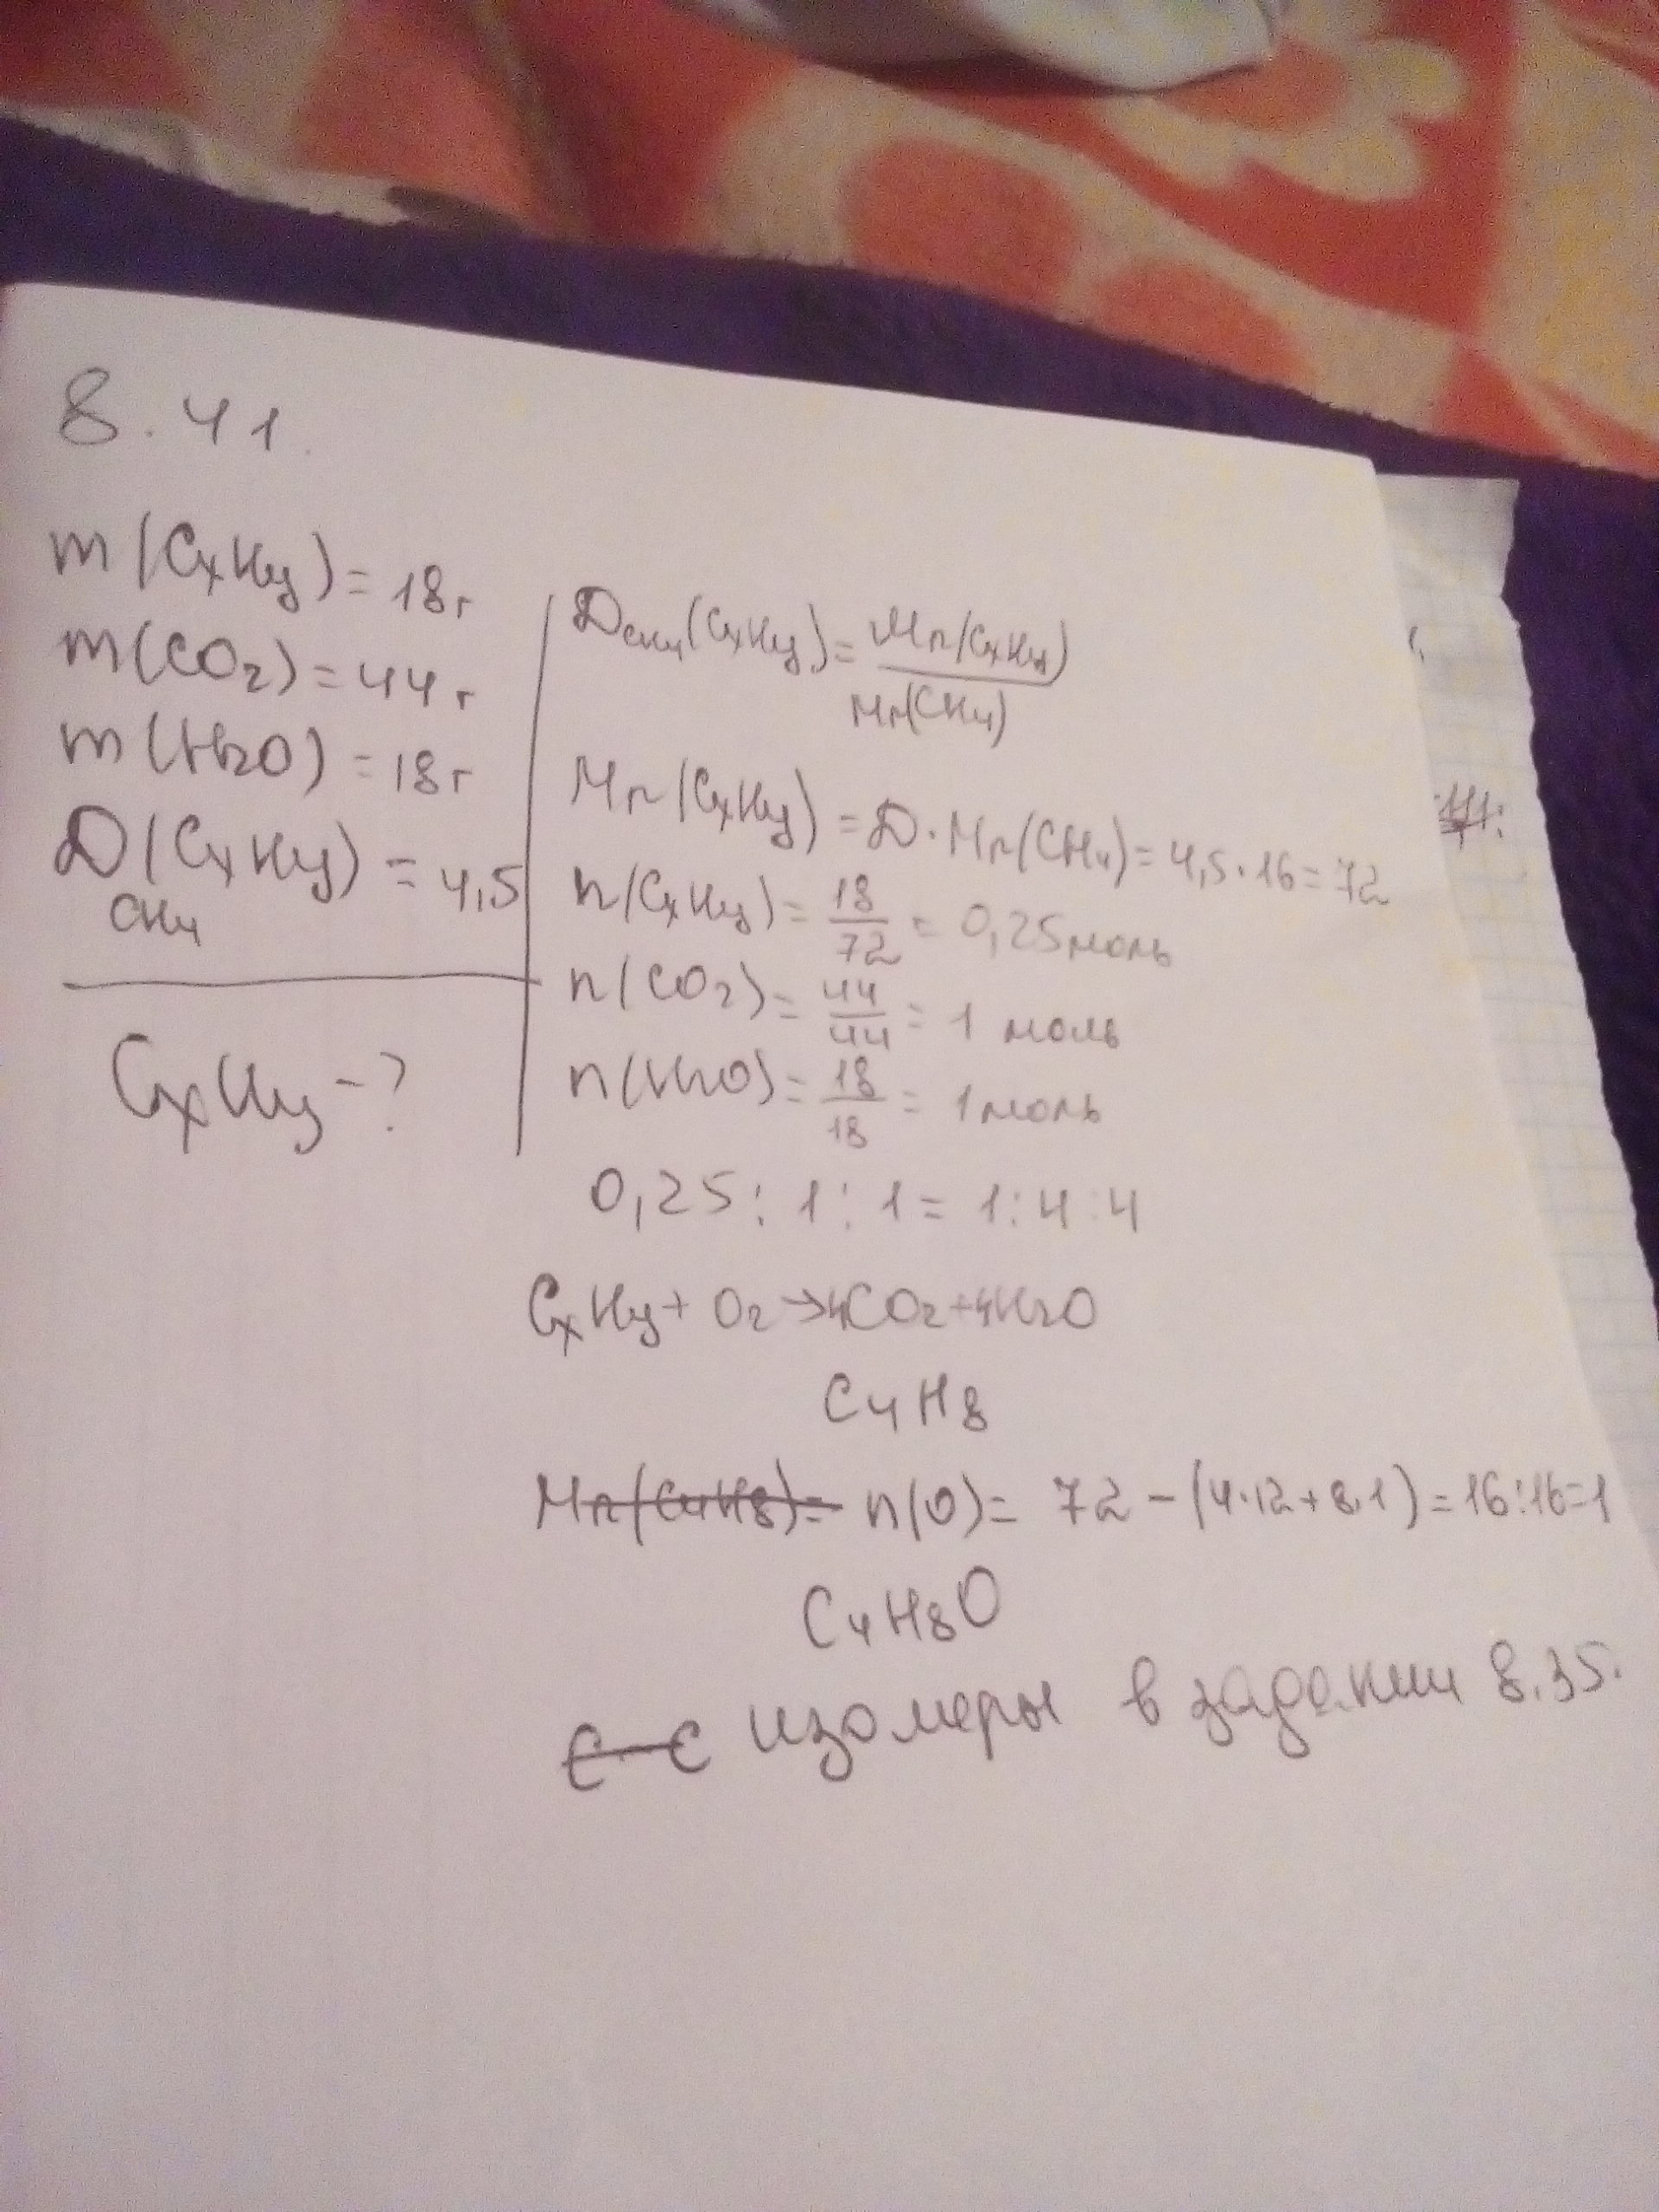 8.41.
m(CxHy)=18г
m(CO2)=44г
m(H2O)=18г
D(CxHy)=4,5
CH4
CxHy-?
DCH4(CxHy)=Mr(CxHy)
Mr(CH4)
Mr(CxHy)=D·Mr(CH4)=4,5·16=72
n(CxHy)=18/72=0,25моль
n(CO2)=44/44=1 моль
n(H2O)=18/18=1моль
0,25:1:1=1:4:4
CxHy+O2→4CO2+4H2O
C4H8
Mr(C4H8)= n(O)= 72-(4·12+8·1)=16:16=1
C4H8O
C-C изомеры в задании 8.35.